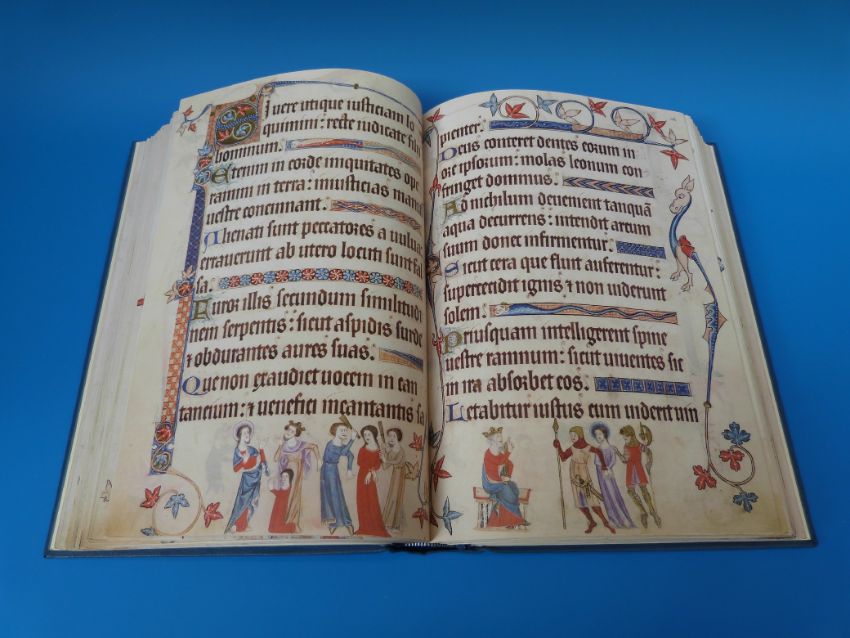 Si uere utique iusticiam lo
quimini: recte iudicate filii
hominum.
Etenim in corde iniquitates ope
ramini in terra: iniusticias manus
uestre concinnant.
Alienati sunt peccatores a uulua:
errauerunt ab utero locuti sunt fal
sa.
Furor illis secundum similitudi
nem serpentis: sicut aspidis surde
⁊ obdurantes aures suas.
Que non exaudiet uocem in can
tancium: ⁊ uenefici incantantis sa
pienter.
Deus conteret dentes eorum in
ore ipsorum: molas leonum con
fringet dominus.
Ad nichilum deuenient tanquā
aqua decurrens: intendit arcum
suum donec infirmentur.
Sicut cera que fluit auferentur:
supercecidit ignis ⁊ non uiderunt
solem.
Priusquam intelligerent spine
uestre ramnum: sicut uiuentes sic
in ira absorbet eos.
Letabitur iustus cum uiderit uin